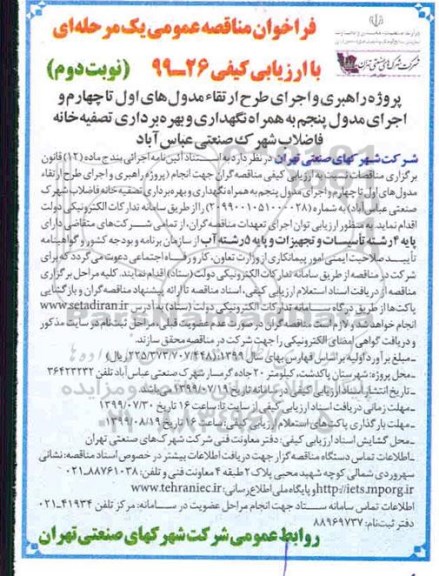 فراخوان مناقصه عمومی یک مرحله‌ای
با ارزیابی کیفی ۲۶-۹۹ (نوبت دوم)
شرکت شهرکهای صنعتی تهران
پروژه راهبری و اجرای طرح ارتقاء مدول های اول تا چهارم و
اجرای مدول پنجم به همراه نگهداری و بهره برداری تصفیه خانه
فاضلاب شهرک صنعتی عباس آباد
شرکت شهرکهای صنعتی تهران در نظر دارد به استناد آئین نامه اجرائی بند ج ماده (۱۲) قانون
برگزاری مناقصات و فرآیند ارزیابی کیفی مناقصه گران جهت انجام (پروژه راهبری و اجرای طرح ارتقاء
مدول های اول تا چهارم و اجرای مدول پنجم به همراه نگهداری و بهره برداری تصفیه خانه فاضلاب شهرک
صنعتی عباس آباد) به شماره (۲۰۹۹۰۰۱۰۵۱۰۰۰۰۲۸) را از طریق سامانه تدارکات الکترونیکی دولت
اقدام نماید. به منظور ارزیابی توان اجرای تعهدات مناقصه گران، از تمامی شرکت‌های متقاضی دارای
پایه ۴ رشته تأسیسات و تجهیزات و پایه ۵ رشته آب از سازمان برنامه و بودجه کشور و گواهینامه
تأیید صلاحیت ایمنی امور پیمانکاری از وزارت تعاون، کار و رفاه اجتماعی دعوت می گردد که برای
شرکت در مناقصه از طریق سامانه تدارکات الکترونیکی دولت (ستاد) اقدام نمایند. کلیه مراحل برگزاری
مناقصه از دریافت اسناد استعلام ارزیابی کیفی، اسناد مناقصه تا ارائه پیشنهاد مناقصه گران و بازگشایی
پاکت‌ها از طریق درگاه سامانه تدارکات الکترونیکی دولت (ستاد) به آدرس www.setadiran.ir
انجام خواهد شد و لازم است مناقصه گران در صورت عدم عضویت قبلی، مراحل ثبت نام در سایت مذکور
و دریافت گواهی امضای الکترونیکی را جهت شرکت در مناقصه محقق سازند.
-مبلغ برآورد اولیه بر اساس فهارس بهای سال ۱۳۹۹: (۲۲۵/۳۷۳/۷۰۷/۴۴۸ ریال)
-محل پروژه: شهرستان پاکدشت، کیلومتر ۲۰ جاده گرمسار شهرک صنعتی عباس آباد تلفن ۳۶۴۲۳۲۳۲
-تاریخ انتشار اسناد ارزیابی کیفی در سامانه تاریخ ۱۳۹۹/۰۷/۱۹ می باشد.
-مهلت زمانی دریافت اسناد ارزیابی کیفی از سایت تا: ساعت ۱۶ تاریخ ۱۳۹۹/۰۷/۳۰
-مهلت بارگذاری پاکت‌های استعلام ارزیابی کیفی: ساعت ۱۶ تاریخ ۱۳۹۹/۰۸/۱۹
-محل گشایش اسناد ارزیابی کیفی: دفتر معاونت فنی شرکت شهرک های صنعتی تهران
-اطلاعات تماس دستگاه مناقصه گزار جهت دریافت اطلاعات بیشتر در خصوص اسناد مناقصه: نشانی
سهروردی شمالی کوچه شهید محبی پلاک ۲ طبقه ۴ معاونت فنی و تلفن: ۸۸۷۶۱۰۳۸-۰۲۱
http://iets.mporg.ir و پایگاه ملی اطلاع رسانی: www.tehraniec.ir
اطلاعات تماس سامانه ستاد جهت انجام مراحل عضویت در سامانه: مرکز تلفن: ۴۱۹۳۴-۰۲۱
دفتر ثبت نام: ۸۸۹۶۹۷۳۷
روابط عمومی شرکت شهرکهای صنعتی تهران